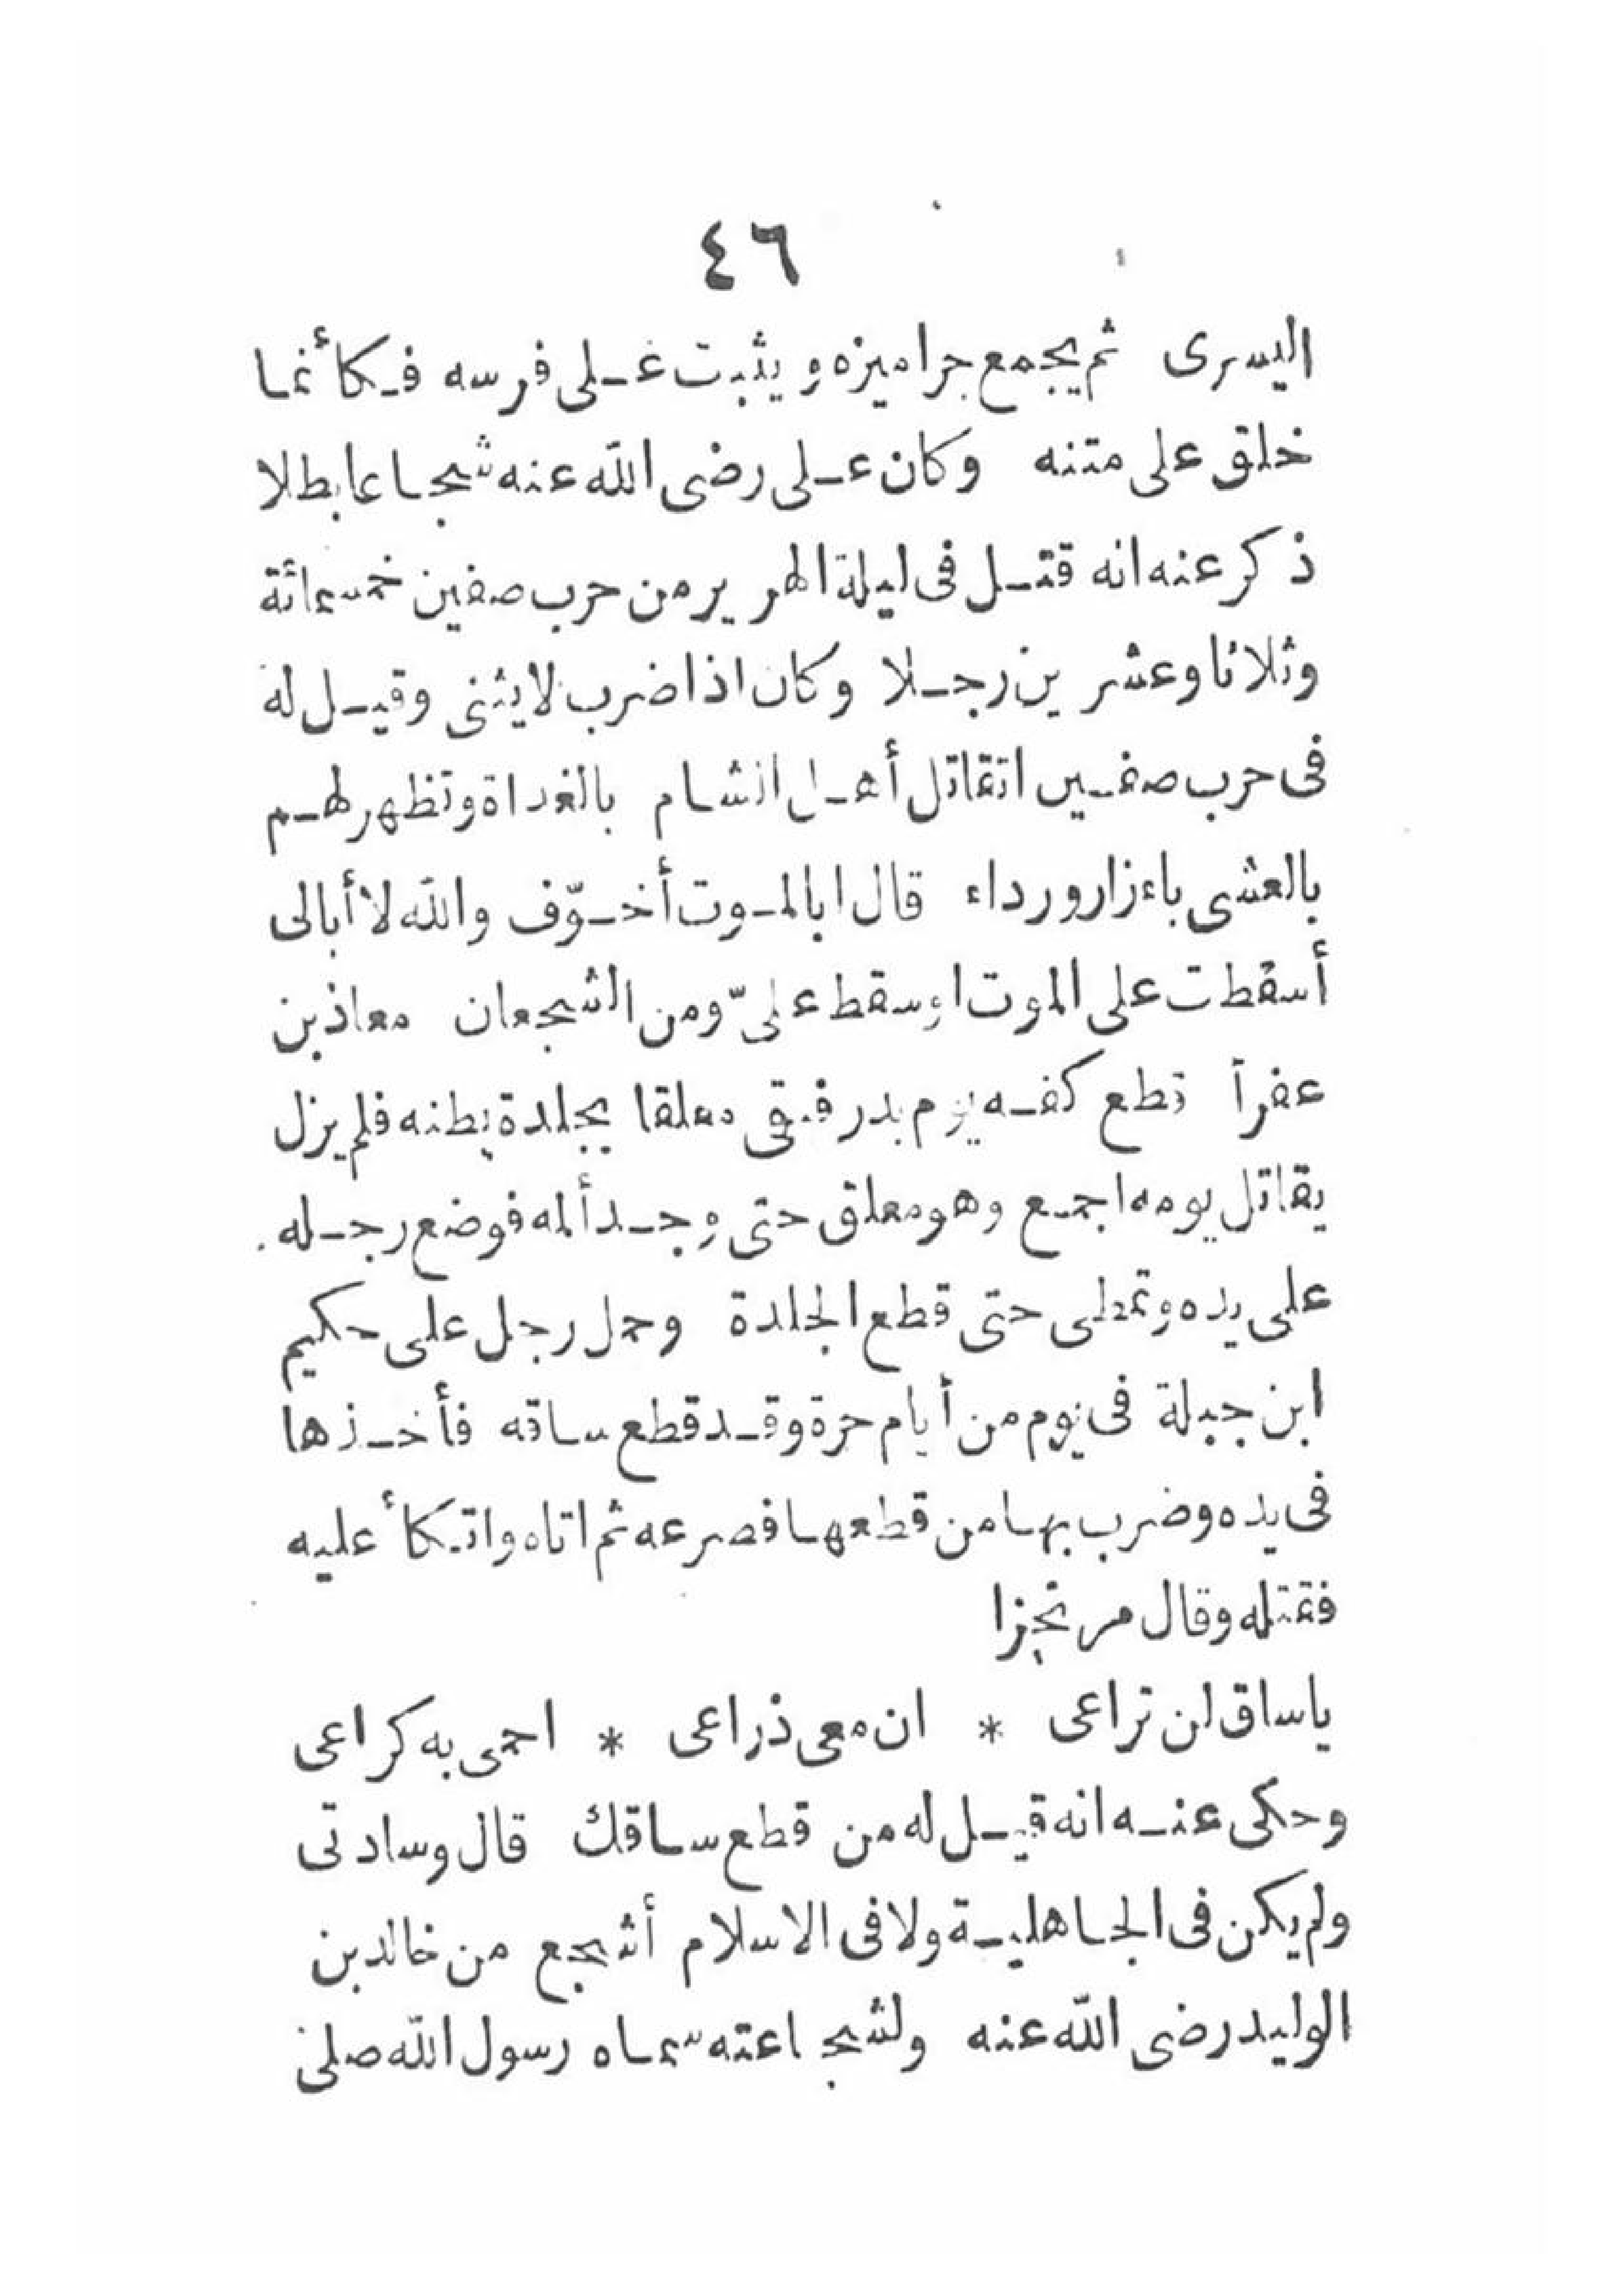 ٤٦
اليسرى ثم يجمع جراميزه ويثبت على فرسه فكأنما
خلق على متنه وكان على رضى الله عنه شجاعا بطلا
ذكر عنه انه قتل فى ليلة الهرير من حرب صفين خمسمائة
وثلاثا وعشرين رجلا وكان اذا ضرب لا يثنى وقيل له
فى حرب صفين اتقاتل أهل الشام بالغداة وتظهر لهم
بالعشى باءزار ورداء قال ابالموت أخوّف والله لا أبالى
أسقطت على الموت او سقط علىّ ومن الشجعان معاذ بن
عفرأ قطع كفه يوم بدر فبقى معلقا بجلدة بطنه فلم يزل
يقاتل يومه اجمع وهو معلق حتى وجد ألمه فوضع رجله
على يده وتمطى حتى قطع الجلدة وحمل رجل على حكيم
ابن جبلة فى يوم من أيام حرة وقد قطع ساقه فأخذها
فى يده وضرب بها من قطعها فصرعه ثم اتاه واتكأ عليه
فقتله وقال مرتجزا
يا ساق لن تراعى * ان معى ذراعى * احمى به كراعى
وحكى عنه انه قيل له من قطع ساقك قال وسادتى
ولم يكن فى الجاهلية ولا فى الاسلام أشجع من خالد بن
الوليد رضى الله عنه ولشجاعته سماه رسول الله صلى